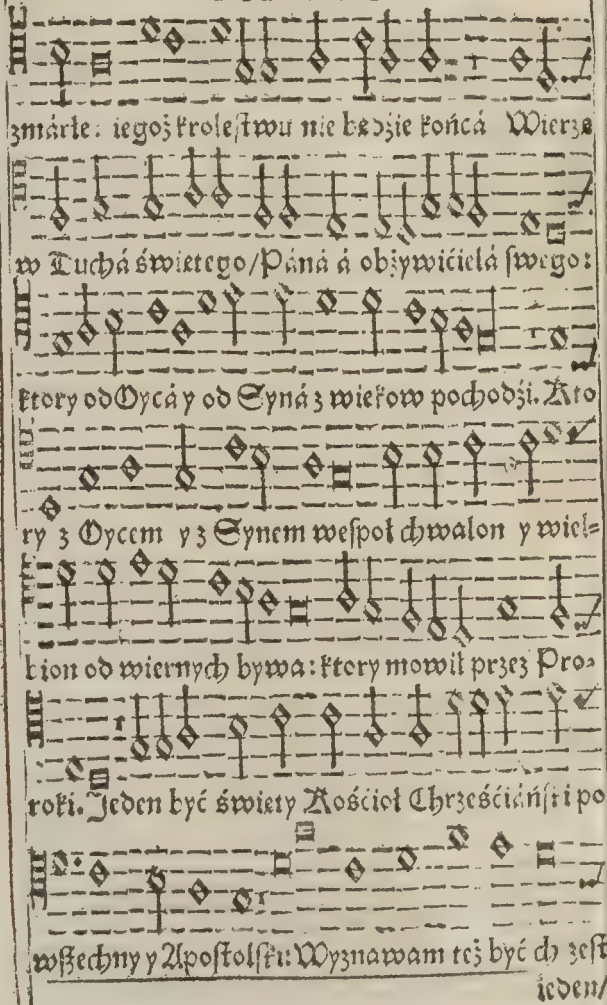 zmárłe: iegoż krolestwu nie będzie końcá Wierzę
w Duchá świętego/ Páná á obżywićielá swego:
ktory od Oycá y od Syná z wiekow pochodźi. Kto
ry z Oycem y z Synem wespoł chwalon y wiel-
bion od wiernych bywa: ktory mowił przez Pro-
roki. Jeden być święty Kośćioł Chrześćiáński po
wszechny y Apostolski: Wyznawam też być ch zest
ieden/